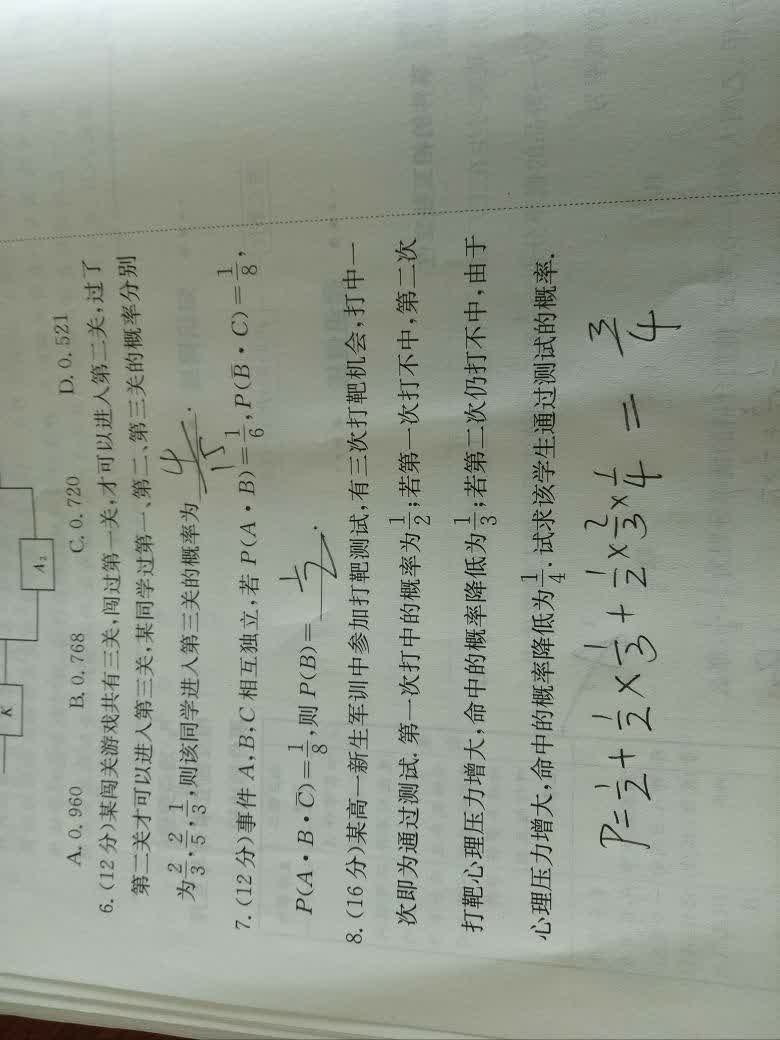 K
A₂
A. 0. 960 B. 0. 768 C. 0. 720 D. 0. 521
6. (12分)某闯关游戏共有三关,闯过第一关,才可以进入第二关,过了
第二关才可以进入第三关,某同学过第一、第二、第三关的概率分别
为2/3,2/5,1/3,则该同学进入第三关的概率为 4/15 .
7. (12分)事件A,B,C相互独立,若P(A·B)=1/6,P(B̄·C)=1/8,
P(A·B·C̄)=1/8,则P(B)= 1/2 .
8. (16分)某高一新生军训中参加打靶测试,有三次打靶机会,打中一
次即为通过测试. 第一次打中的概率为1/2;若第一次打不中,第二次
打靶心理压力增大,命中的概率降低为1/3;若第二次仍打不中,由于
心理压力增大,命中的概率降低为1/4. 试求该学生通过测试的概率.
P=1/2+1/2×1/3+1/2×2/3×1/4=3/4